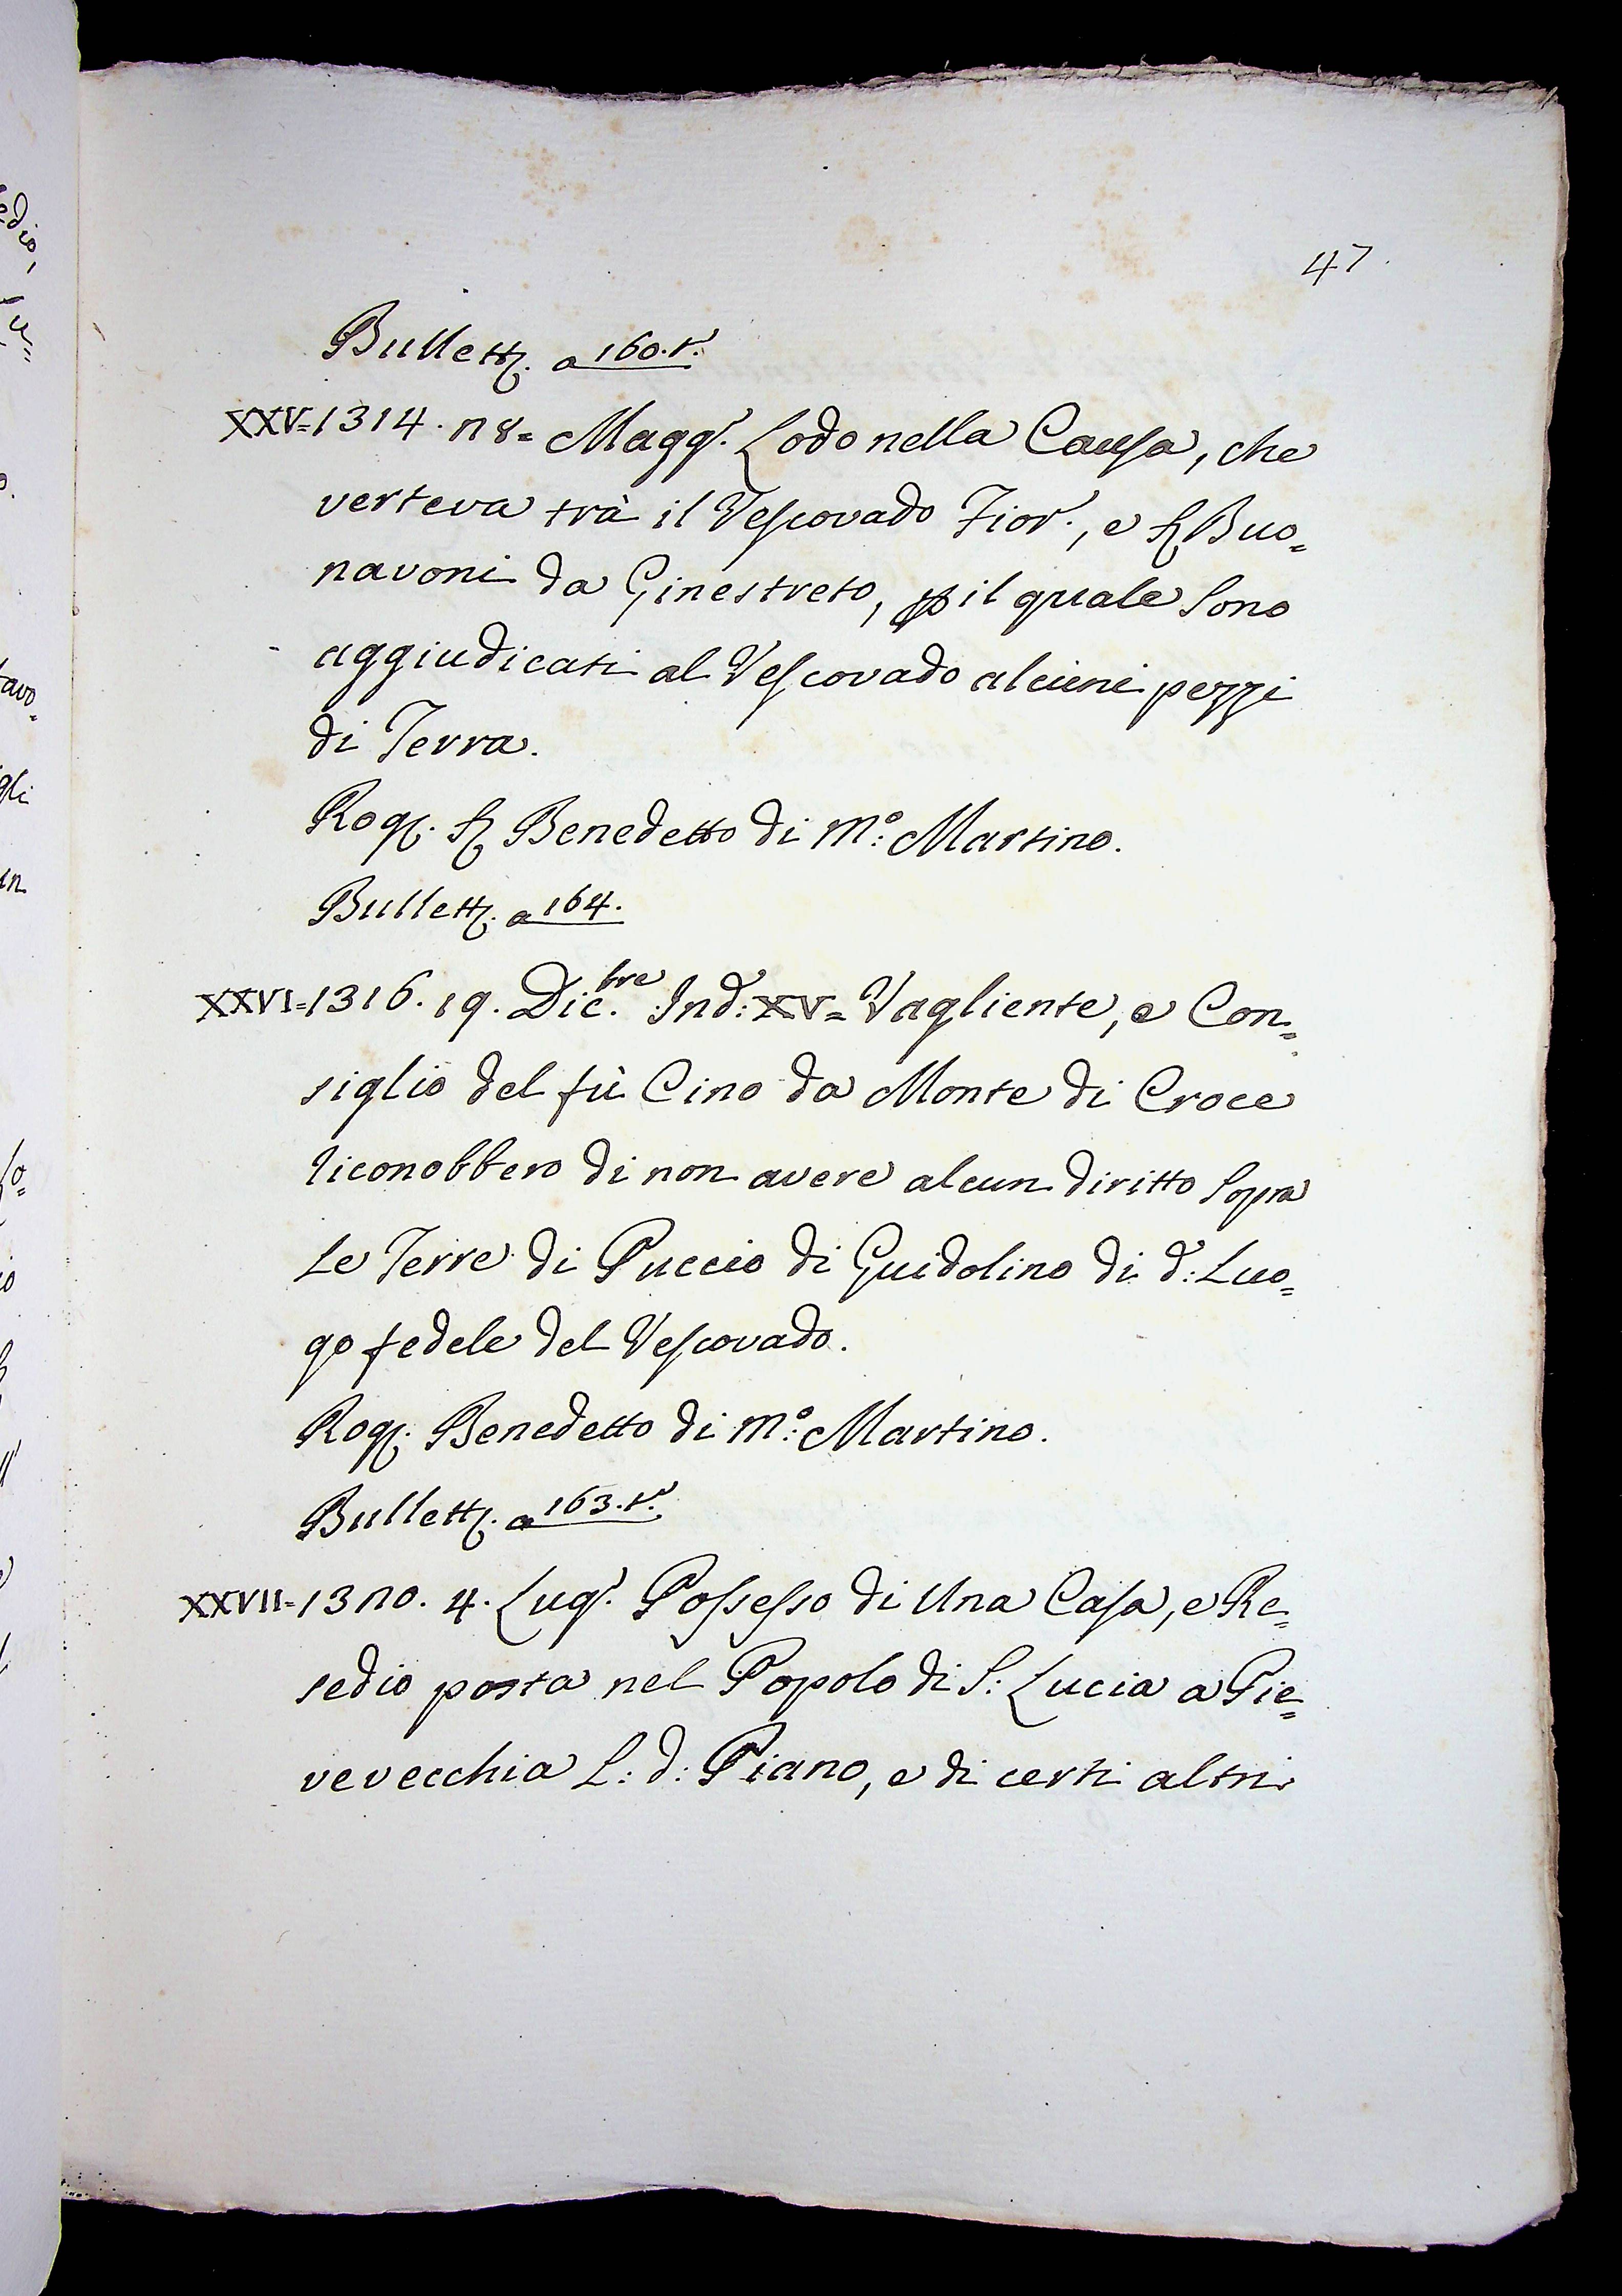 47.
Bullett. a 160.t.
XXV=1314. 28= Magg. Lodo nella Causa, che
verteva trà il Vescovado Fior., e S. Buo=
navoni da Ginestreto, p il quale sono
aggiudicati al Vescovado alcuni pezzi
di Terra.
Rog. S. Benedetto di M.º Martino.
Bullett. a 164.
XXVI=1316. 19. Dic.bre Ind: XV= Vagliente, e Con=
siglio del fù Cino da Monte di Croce
riconobbero di non avere alcun diritto sopra
le Terre di Puccio di Guidolino di d: Luo=
go fedele del Vescovado.
Rog. Benedetto di M.º Martino.
Bullett. a 163.t.
XXVII=1320. 4. Lug. Possesso di Una Casa, e Re=
sedio posta nel Popolo di S: Lucia a Pie=
vevecchia L: d: Piano, e di certi altri